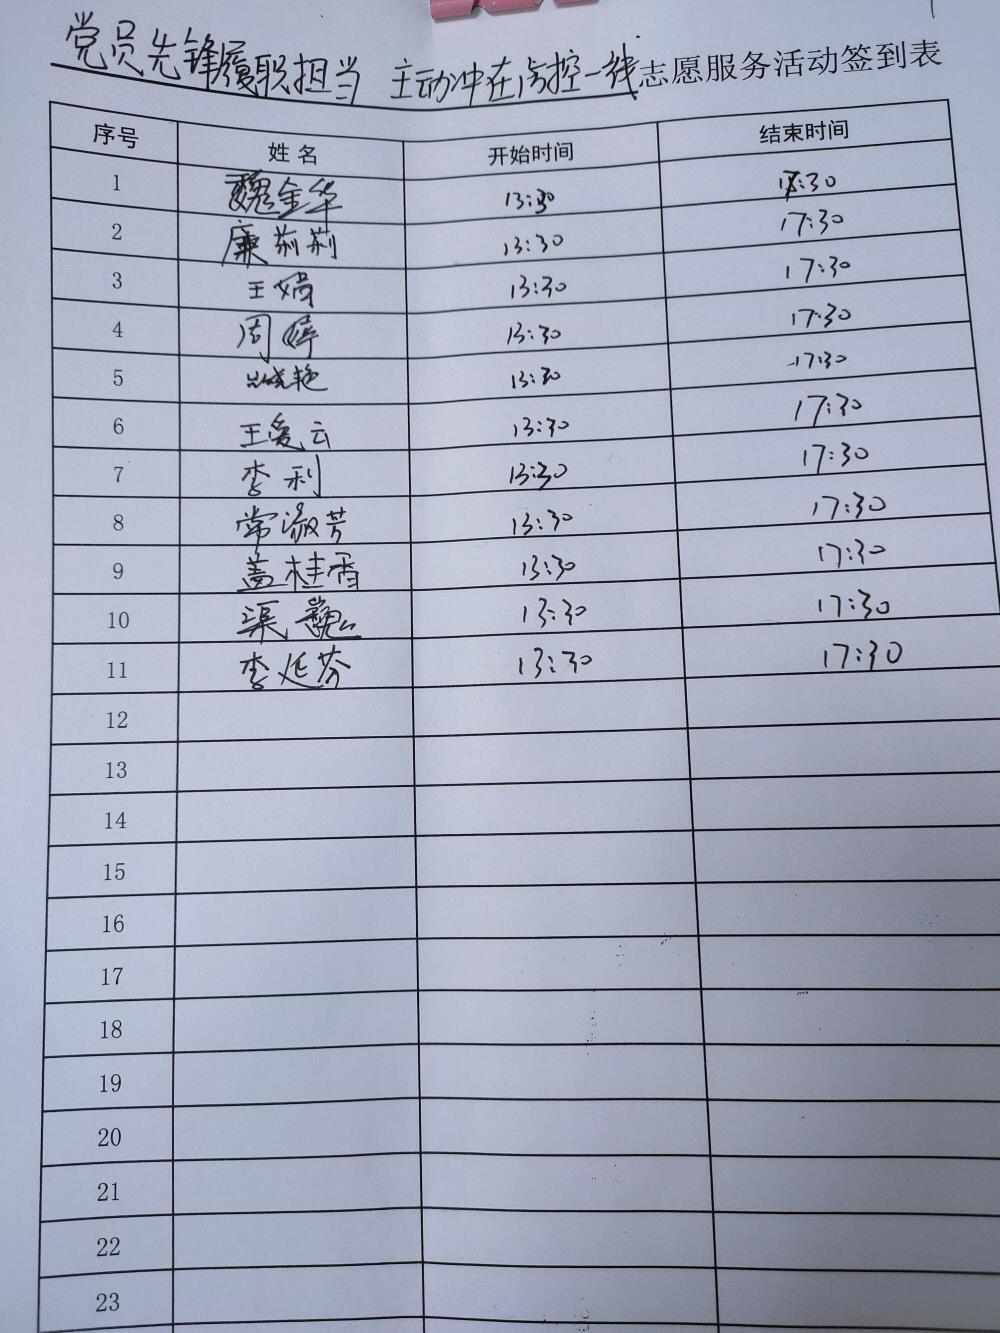 党员先锋履职担当 主动冲在防控一线志愿服务活动签到表
序号 姓名 开始时间 结束时间
1 魏金华 13:30 17:30
2 廉荊荊 13:30 17:30
3 王娟 13:30 17:30
4 周婷 13:30 17:30
5 晓艳 13:30 17:30
6 王爱云 13:30 17:30
7 李利 13:30 17:30
8 常淑芳 13:30 17:30
9 盖桂香 13:30 17:30
10 渠巍 13:30 17:30
11 李延芬 13:30 17:30
12
13
14
15
16
17
18
19
20
21
22
23